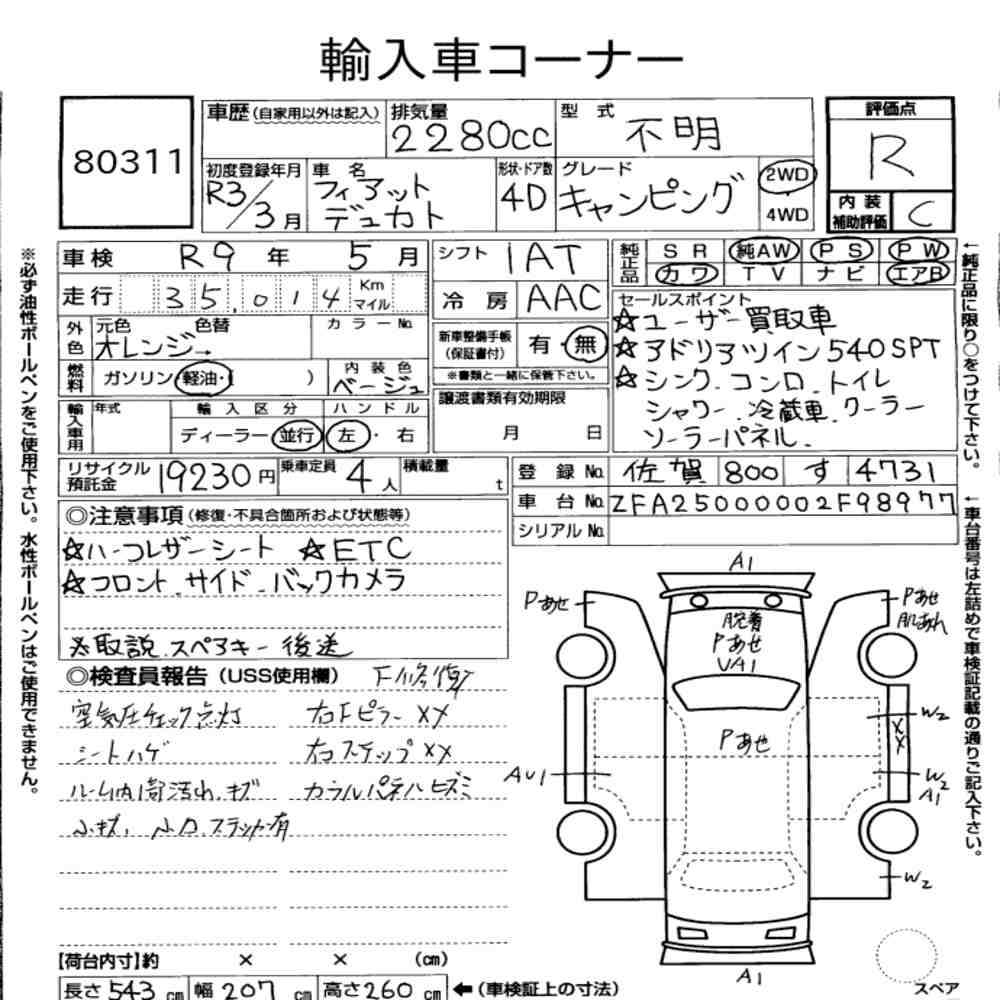 輸入車コーナー
80311
車歴(自家用以外は記入)
排気量
2280cc
型式
不明
評価点
R
初度登録年月
R3/3月
車名
フィアット
デュカト
形状・ドア数
4D
グレード
キャンピング
2WD
4WD
内装
補助評価
C
車検 R9年 5月
シフト 1AT
純正品
SR 純AW PS PW
カワ TV ナビ エアB
走行 35,014 Km マイル
冷房 AAC
外色
元色 色替
オレンジ→
カラーNo.
新車整備手帳
(保証書付)
有・無
※書類と一緒に保管下さい。
燃料
ガソリン・軽油・( )
内装色
ベージュ
輸入車用
年式
輸入区分
ディーラー・並行
ハンドル
左・右
譲渡書類有効期限
月 日
セールスポイント
☆ユーザー買取車
☆アドリアツイン540SPT
☆シンク.コンロ.トイレ
シャワー.冷蔵車.クーラー
ソーラーパネル.
リサイクル
預託金
19230円
乗車定員 4人
積載量 t
登録No. 佐賀 800 す 4731
車台No. ZFA25000002F98977
シリアルNo.
◎注意事項(修復・不具合箇所および状態等)
☆ハーフレザーシート ☆ETC
☆フロント.サイド.バックカメラ
※取説.スペアキー後送
◎検査員報告(USS使用欄)
下修復
空気圧チェック点灯 右FピラーXX
シートハゲ 右ステップXX
ルーム内1部汚れ.キズ カウルパネルヒズミ
小キズ,小凹.ステッカー有
A1
Pあせ
脱着
Pあせ
UA1
Pあせ
肌あれ
Pあせ
W2
XX
AU1
W2
A1
W2
A1
スペア
【荷台内寸】約 × × (cm)
長さ543cm 幅207cm 高さ260cm ←(車検証上の寸法)
※必ず油性ボールペンをご使用下さい。水性ボールペンはご使用できません。
←純正品に限り○をつけて下さい。
←車台番号は左詰めで車検証記載の通りご記入下さい。